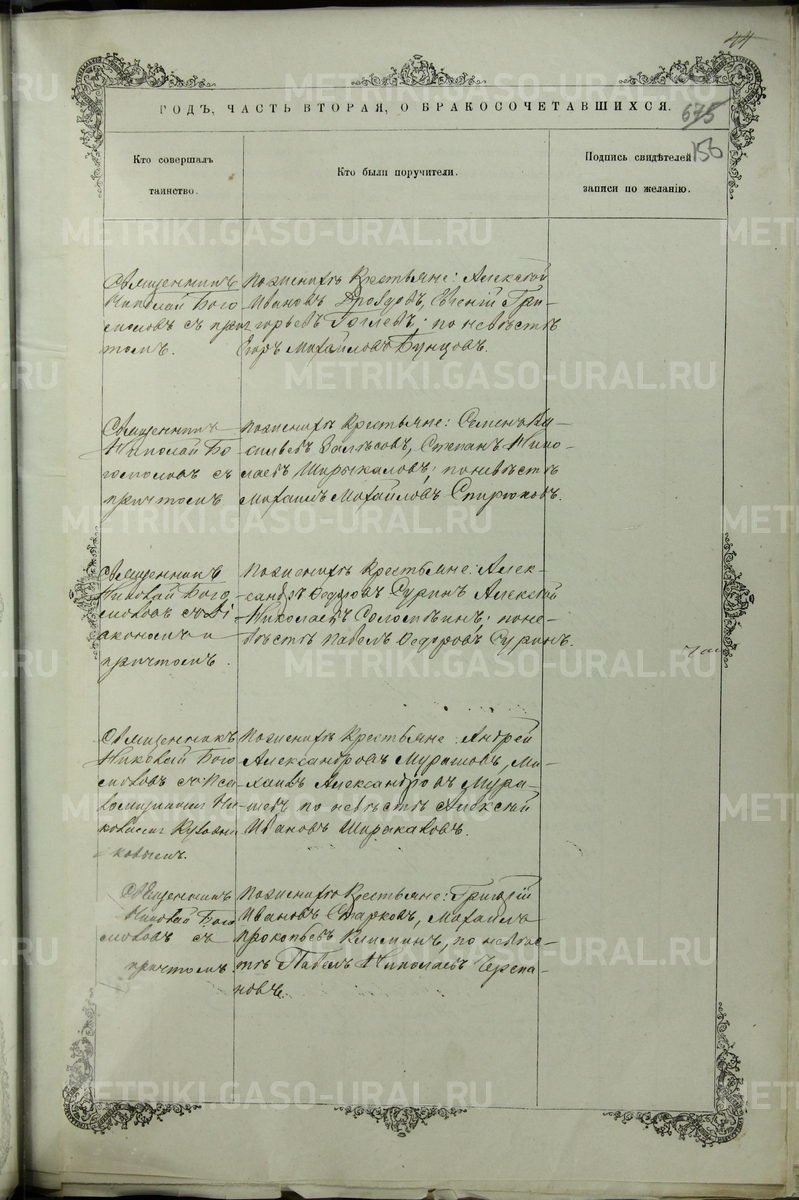 44
ГОДЪ, ЧАСТЬ ВТОРАЯ, О БРАКОСОЧЕТАВШИХСЯ.
675
156
Кто совершалъ
таинство.
Кто были поручители.
Подпись свидѣтелей
записи по желанію.
Священникъ
Николай Бого
словъ съ прич
томъ.
По женихѣ Крестьяне: Алексѣй
Ивановъ Евгеній Гри-
горьевъ по невѣстѣ
Егоръ Михайловъ Бунцовъ.
Священникъ
Николай Бо
гословъ съ
причтомъ
По женихѣ Крестьяне: Семенъ Ва
сильевъ Степанъ Нико-
лаевъ Ширыкаловъ; по невѣстѣ
Михаилъ Михайловъ Спирюковъ.
Священникъ
Николай Бого
словъ съ Ді
акономъ и
причтомъ.
По женихѣ Крестьяне: Алек-
сандръ Ѳедоровъ Суринъ Алексѣй
Николаевъ Соломеинъ; по не-
вѣстѣ Павелъ Ѳедоровъ Суринъ.
Священникъ
Николай Бого
словъ съ Пса
ломщикомъ Ни
колаемъ
По женихѣ Крестьяне: Андрей
Александровъ Мурашовъ, Ми-
хаилъ Александровъ Мура-
шовъ, по невѣстѣ Алексѣй
Ивановъ Ширыкаловъ.
Священникъ
Николай Бого
словъ съ
причтомъ
По женихѣ Крестьяне: Григорій
Ивановъ Старковъ, Михаилъ
Прокопьевъ Климинъ, по невѣс-
тѣ Павелъ Николаевъ Черепа-
новъ.
METRIKI.GASO-URAL.RU